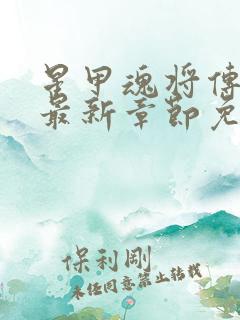 星甲魂将傳
最新章節免
保利剛
未经同意禁止转载